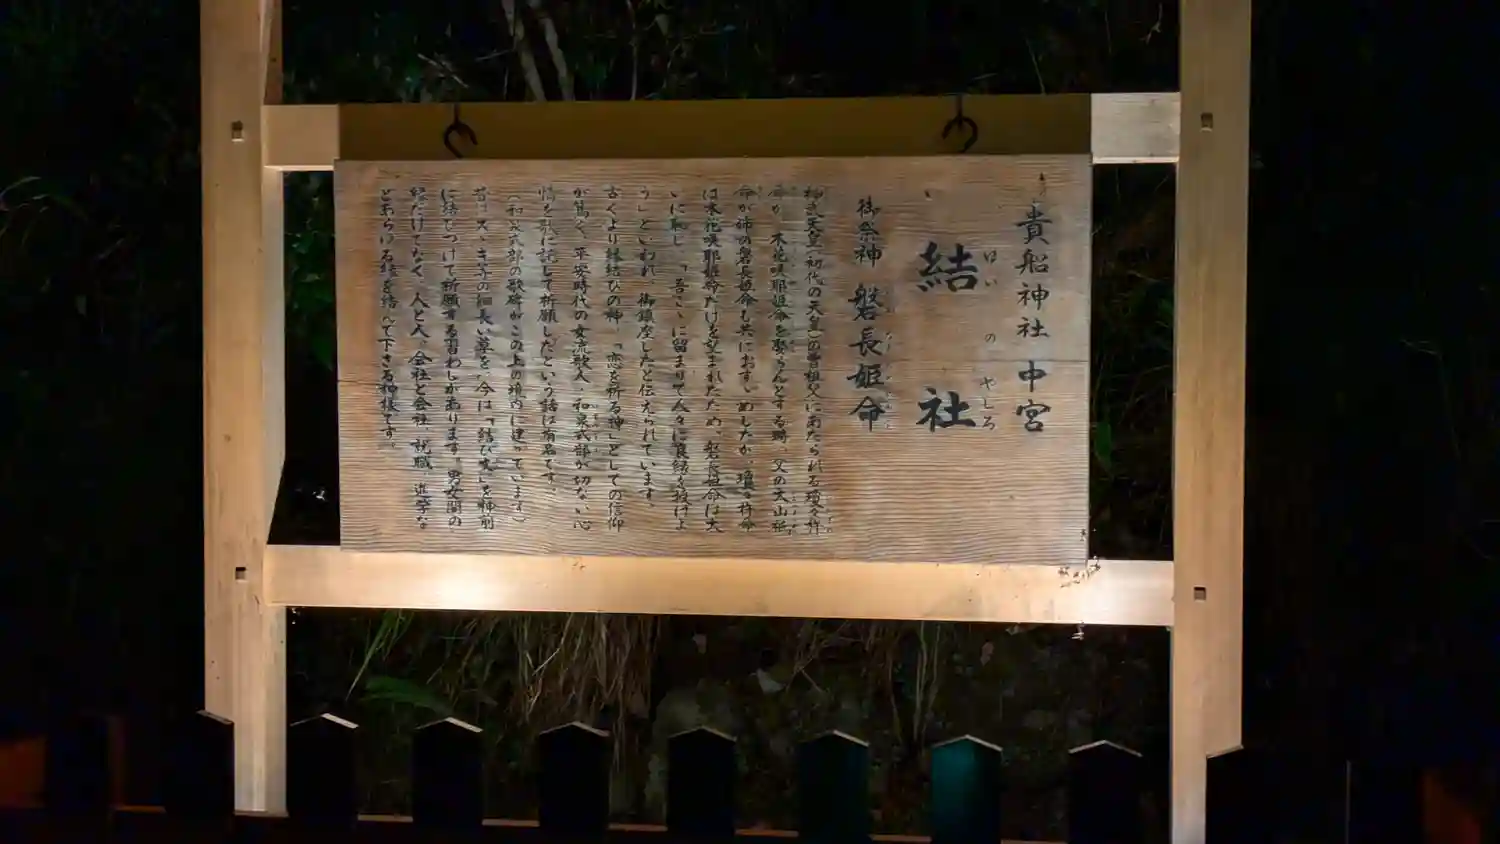 貴船神社 中宮
結社
けい の やしろ
御祭神 磐長姫命
神武天皇(初代の天皇)の曽祖父にあたられる瓊々杵
命が、木花咲耶姫命を娶らんとする時、父の大山祇
命が姉の磐長姫命も共におすゝめしたが、瓊々杵命
は木花咲耶姫命だけを望まれたため、磐長姫命は大
いに恥じ、「吾ここに留まりて人々に良縁を授けよ
う」といわれ、御鎮座したと伝えられています。
古くより縁結びの神、「恋を祈る神」としての信仰
が篤く、平安時代の女流歌人・和泉式部が切ない心
情を歌に託して祈願したという話は有名です。
(和泉式部の歌碑がこの上の境内に建っています)
昔はスゝキ等の細長い草を、今は「結び文」を神前
に結びつけて祈願する習わしがあります。男女間の
縁だけでなく、人と人、会社と会社、就職、進学な
どあらゆる縁を結んで下さる神様です。